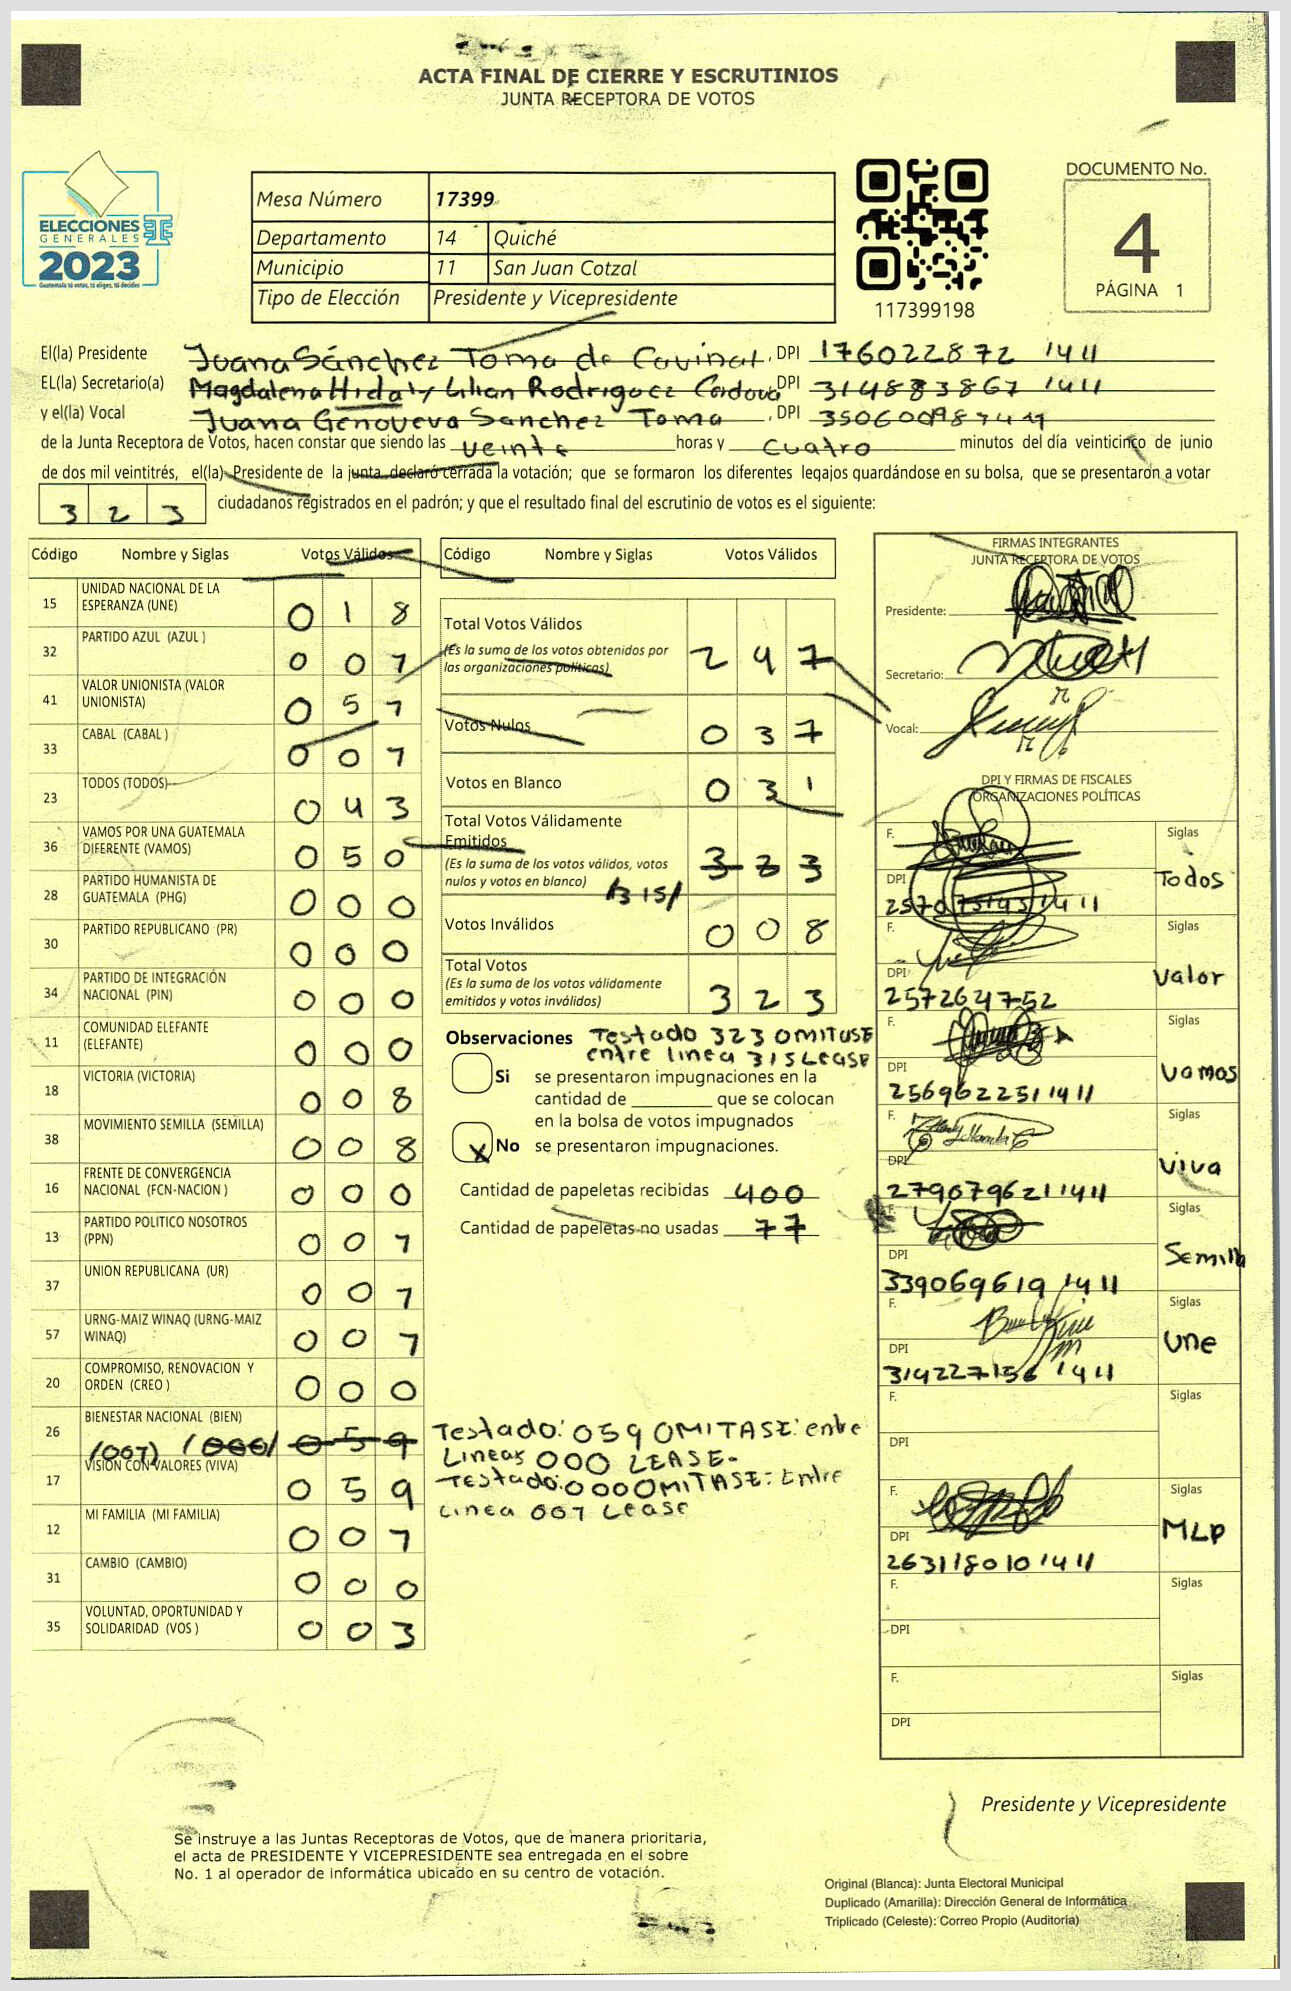 ACTA FINAL DE CIERRE Y ESCRUTINIOS
JUNTA RECEPTORA DE VOTOS
ELECCIONES
GENERALES
2023
Guatemala tú votas, tú eliges, tú decides
Mesa Número 17399
Departamento 14 Quiché
Municipio 11 San Juan Cotzal
Tipo de Elección Presidente y Vicepresidente
117399198
DOCUMENTO No.
4
PÁGINA 1
El(la) Presidente Juana Sánchez Toma de Cavinal, DPI 176022872 1411
EL(la) Secretario(a) Magdalena Hida y Lilian Rodriguez Cordova DPI 314883867 1411
y el(la) Vocal Juana Genoveva Sanchez Toma, DPI
de la Junta Receptora de Votos, hacen constar que siendo las veinte horas y cuatro minutos del día veinticinco de junio
de dos mil veintitrés, el(la) Presidente de la junta declaró cerrada la votación; que se formaron los diferentes legajos guardándose en su bolsa, que se presentaron a votar
323 ciudadanos registrados en el padrón; y que el resultado final del escrutinio de votos es el siguiente:
Código Nombre y Siglas Votos Válidos
15 UNIDAD NACIONAL DE LA ESPERANZA (UNE) 018
32 PARTIDO AZUL (AZUL ) 001
41 VALOR UNIONISTA (VALOR UNIONISTA) 051
33 CABAL (CABAL ) 001
23 TODOS (TODOS) 043
36 VAMOS POR UNA GUATEMALA DIFERENTE (VAMOS) 050
28 PARTIDO HUMANISTA DE GUATEMALA (PHG) 000
30 PARTIDO REPUBLICANO (PR) 000
34 PARTIDO DE INTEGRACIÓN NACIONAL (PIN) 000
11 COMUNIDAD ELEFANTE (ELEFANTE) 000
18 VICTORIA (VICTORIA) 008
38 MOVIMIENTO SEMILLA (SEMILLA) 008
16 FRENTE DE CONVERGENCIA NACIONAL (FCN-NACION ) 000
13 PARTIDO POLITICO NOSOTROS (PPN) 001
37 UNION REPUBLICANA (UR) 001
57 URNG-MAIZ WINAQ (URNG-MAIZ WINAQ) 001
20 COMPROMISO, RENOVACION Y ORDEN (CREO ) 000
26 BIENESTAR NACIONAL (BIEN) /001) /000/ 059
17 VISION CON VALORES (VIVA) 059
12 MI FAMILIA (MI FAMILIA) 001
31 CAMBIO (CAMBIO) 000
35 VOLUNTAD, OPORTUNIDAD Y SOLIDARIDAD (VOS ) 003
Código Nombre y Siglas Votos Válidos
Total Votos Válidos 247
(Es la suma de los votos obtenidos por las organizaciones políticas)
Votos Nulos 037
Votos en Blanco 031
Total Votos Válidamente Emitidos 323
(Es la suma de los votos válidos, votos nulos y votos en blanco) /315/
Votos Inválidos 008
Total Votos 323
(Es la suma de los votos válidamente emitidos y votos inválidos)
Observaciones Testado 323 OMITUSE
entre linea 315 LEASE
Si se presentaron impugnaciones en la
cantidad de ________ que se colocan
en la bolsa de votos impugnados
X No se presentaron impugnaciones.
Cantidad de papeletas recibidas 400
Cantidad de papeletas no usadas 77
Testado: 059 OMITASE: entre
Lineas 000 LEASE.
Testado: 000 OMITASE: Entre
Linea 001 Lease
FIRMAS INTEGRANTES
JUNTA RECEPTORA DE VOTOS
Presidente:
Secretario:
Vocal:
DPI Y FIRMAS DE FISCALES
ORGANIZACIONES POLÍTICAS
F. Siglas
DPI Todos
F. Siglas
DPI Valor
2572624752
F. Siglas
DPI Vamos
2569622511411
F. Siglas
DPI Viva
2790796211411
F. Siglas
DPI Semilla
339069619 1411
F. Siglas
DPI Une
314227156 1411
F. Siglas
DPI
F. Siglas
DPI MLP
2631180101411
F. Siglas
DPI
F. Siglas
DPI
Presidente y Vicepresidente
Se instruye a las Juntas Receptoras de Votos, que de manera prioritaria,
el acta de PRESIDENTE Y VICEPRESIDENTE sea entregada en el sobre
No. 1 al operador de informática ubicado en su centro de votación.
Original (Blanca): Junta Electoral Municipal
Duplicado (Amarilla): Dirección General de Informática
Triplicado (Celeste): Correo Propio (Auditoría)